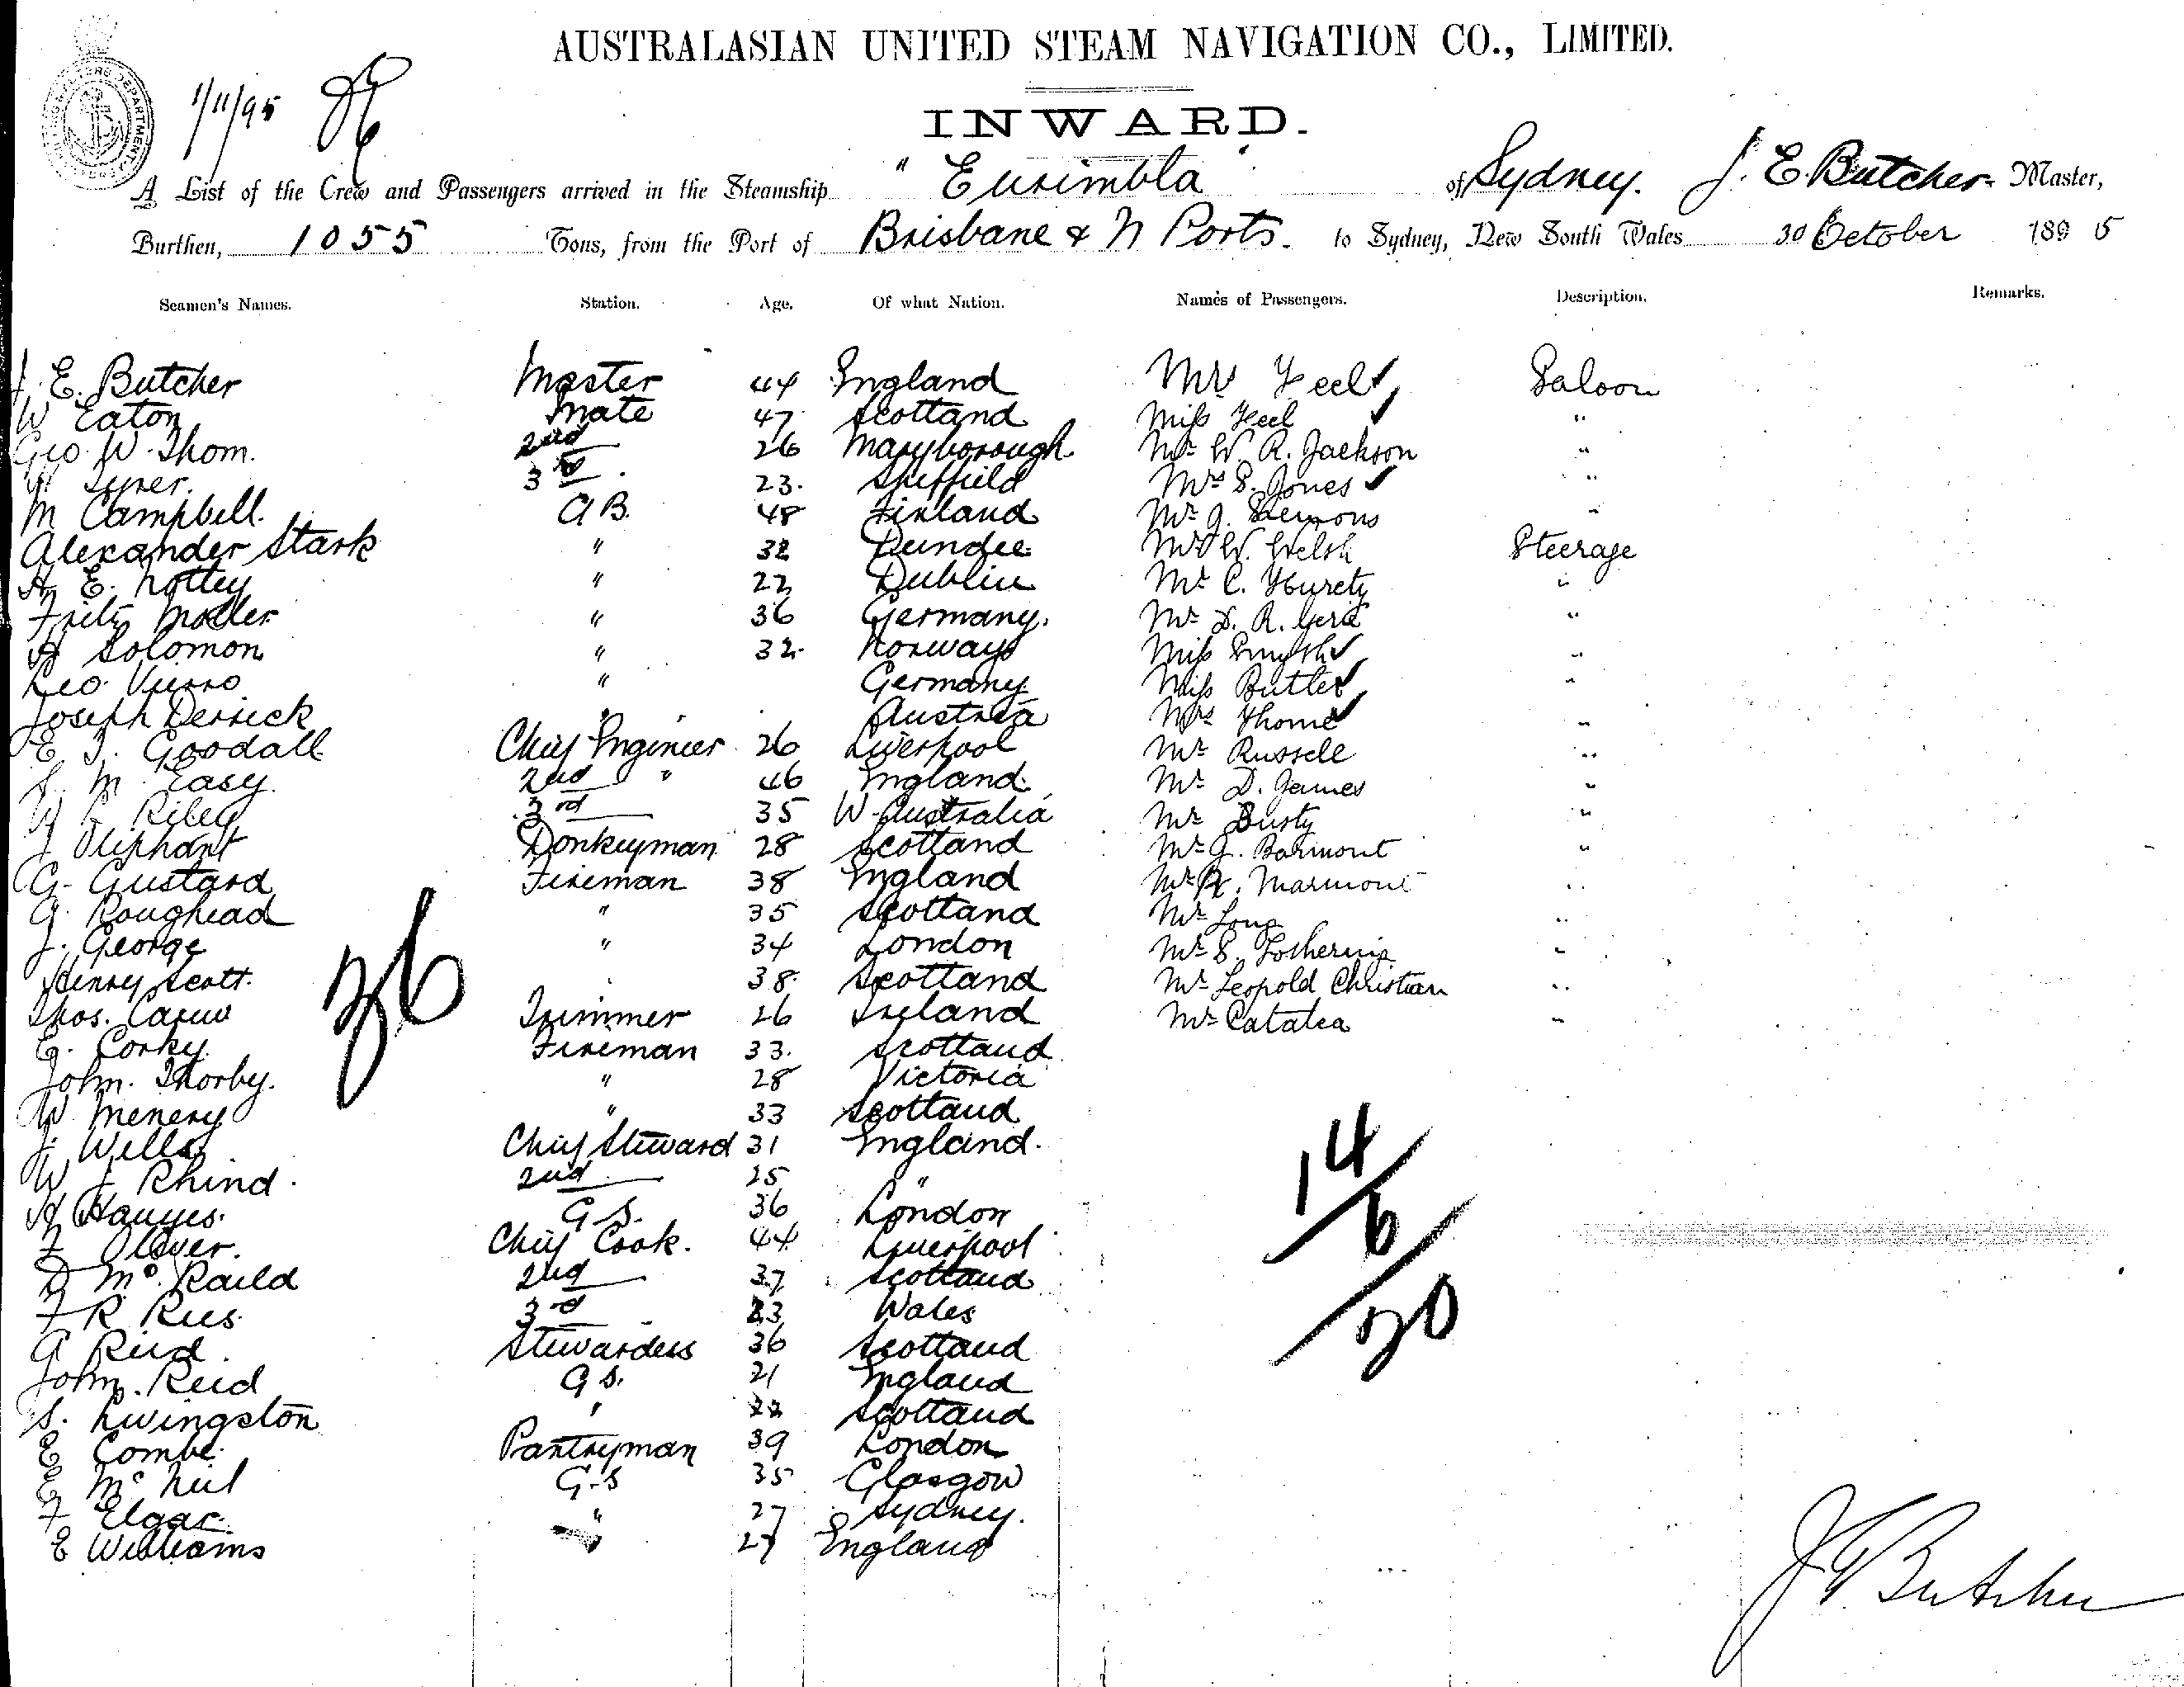 AUSTRALASIAN UNITED STEAM NAVIGATION CO., LIMITED.
1/11/95
INWARD.
A List of the Crew and Passengers arrived in the Steamship "Eurimbla" of Sydney. J. E Butcher Master,
Burthen, 1055 Tons, from the Port of Brisbane & N Ports. to Sydney, New South Wales 30 October 1895
Seamen's Names. Station. Age. Of what Nation. Names of Passengers. Description. Remarks.
J. E. Butcher Master 44 England Mr Feel Saloon
W Eaton Mate 47 Scotland Miss Feel "
Geo. W. Thom. 2nd 26 Maryborough Mr W. R. Jackson "
3rd 23. Sheffield Mrs S. Jones "
M Campbell. A B. 48 Finland Mr J. "
Alexander Stark " 32 Dundee Mr W. Welsh Steerage
A. E. Nottey " 22 Dublin Mr C. "
Fritz Moller " 36 Germany. Mr D. R. "
A Solomon " 32. Norway Miss Smyth "
Leo. " Germany Miss Butler "
Joseph Derrick " Austria Mrs Thome "
E J. Goodall Chief Engineer 26 Liverpool Mr Russell "
M Easy. 2nd " 46 England. Mr D. James "
Riley 3rd 35 W. Australia Mr Busty "
J Oliphant Donkeyman 28 Scotland Mr G. Barmont "
G. Gustard Fireman 38 England Mr Marmont "
G. Roughead " 35 Scotland Mr Long "
J. George " 34 London Mr S. "
Henry Scott. 38. Scotland Mr Leopold Christian "
Thos. Carew Trimmer 26 Ireland Mr Catalea "
G. Corky. Fireman 33. Scotland
John. Thorby. " 28 Victoria
W Menery " 33 Scotland
J. Wells Chief Steward 31 England.
W J Rhind. 2nd 25 "
H Hauyes. G S. 36 London
F Oliver. Chief Cook. 44 Liverpool
D McRaild 2nd 37 Scotland
F R Rees. 3rd 23 Wales
A Reid. Stewardess 36 Scotland
John. Reid G S. 21 England
S. Livingston " 22 Scotland
E Combe. Pantryman 39 London
E McNeil G.S 35 Glasgow
F Elgar. " 27 Sydney.
E Williams 27 England
36
14
6
20
J E Butcher